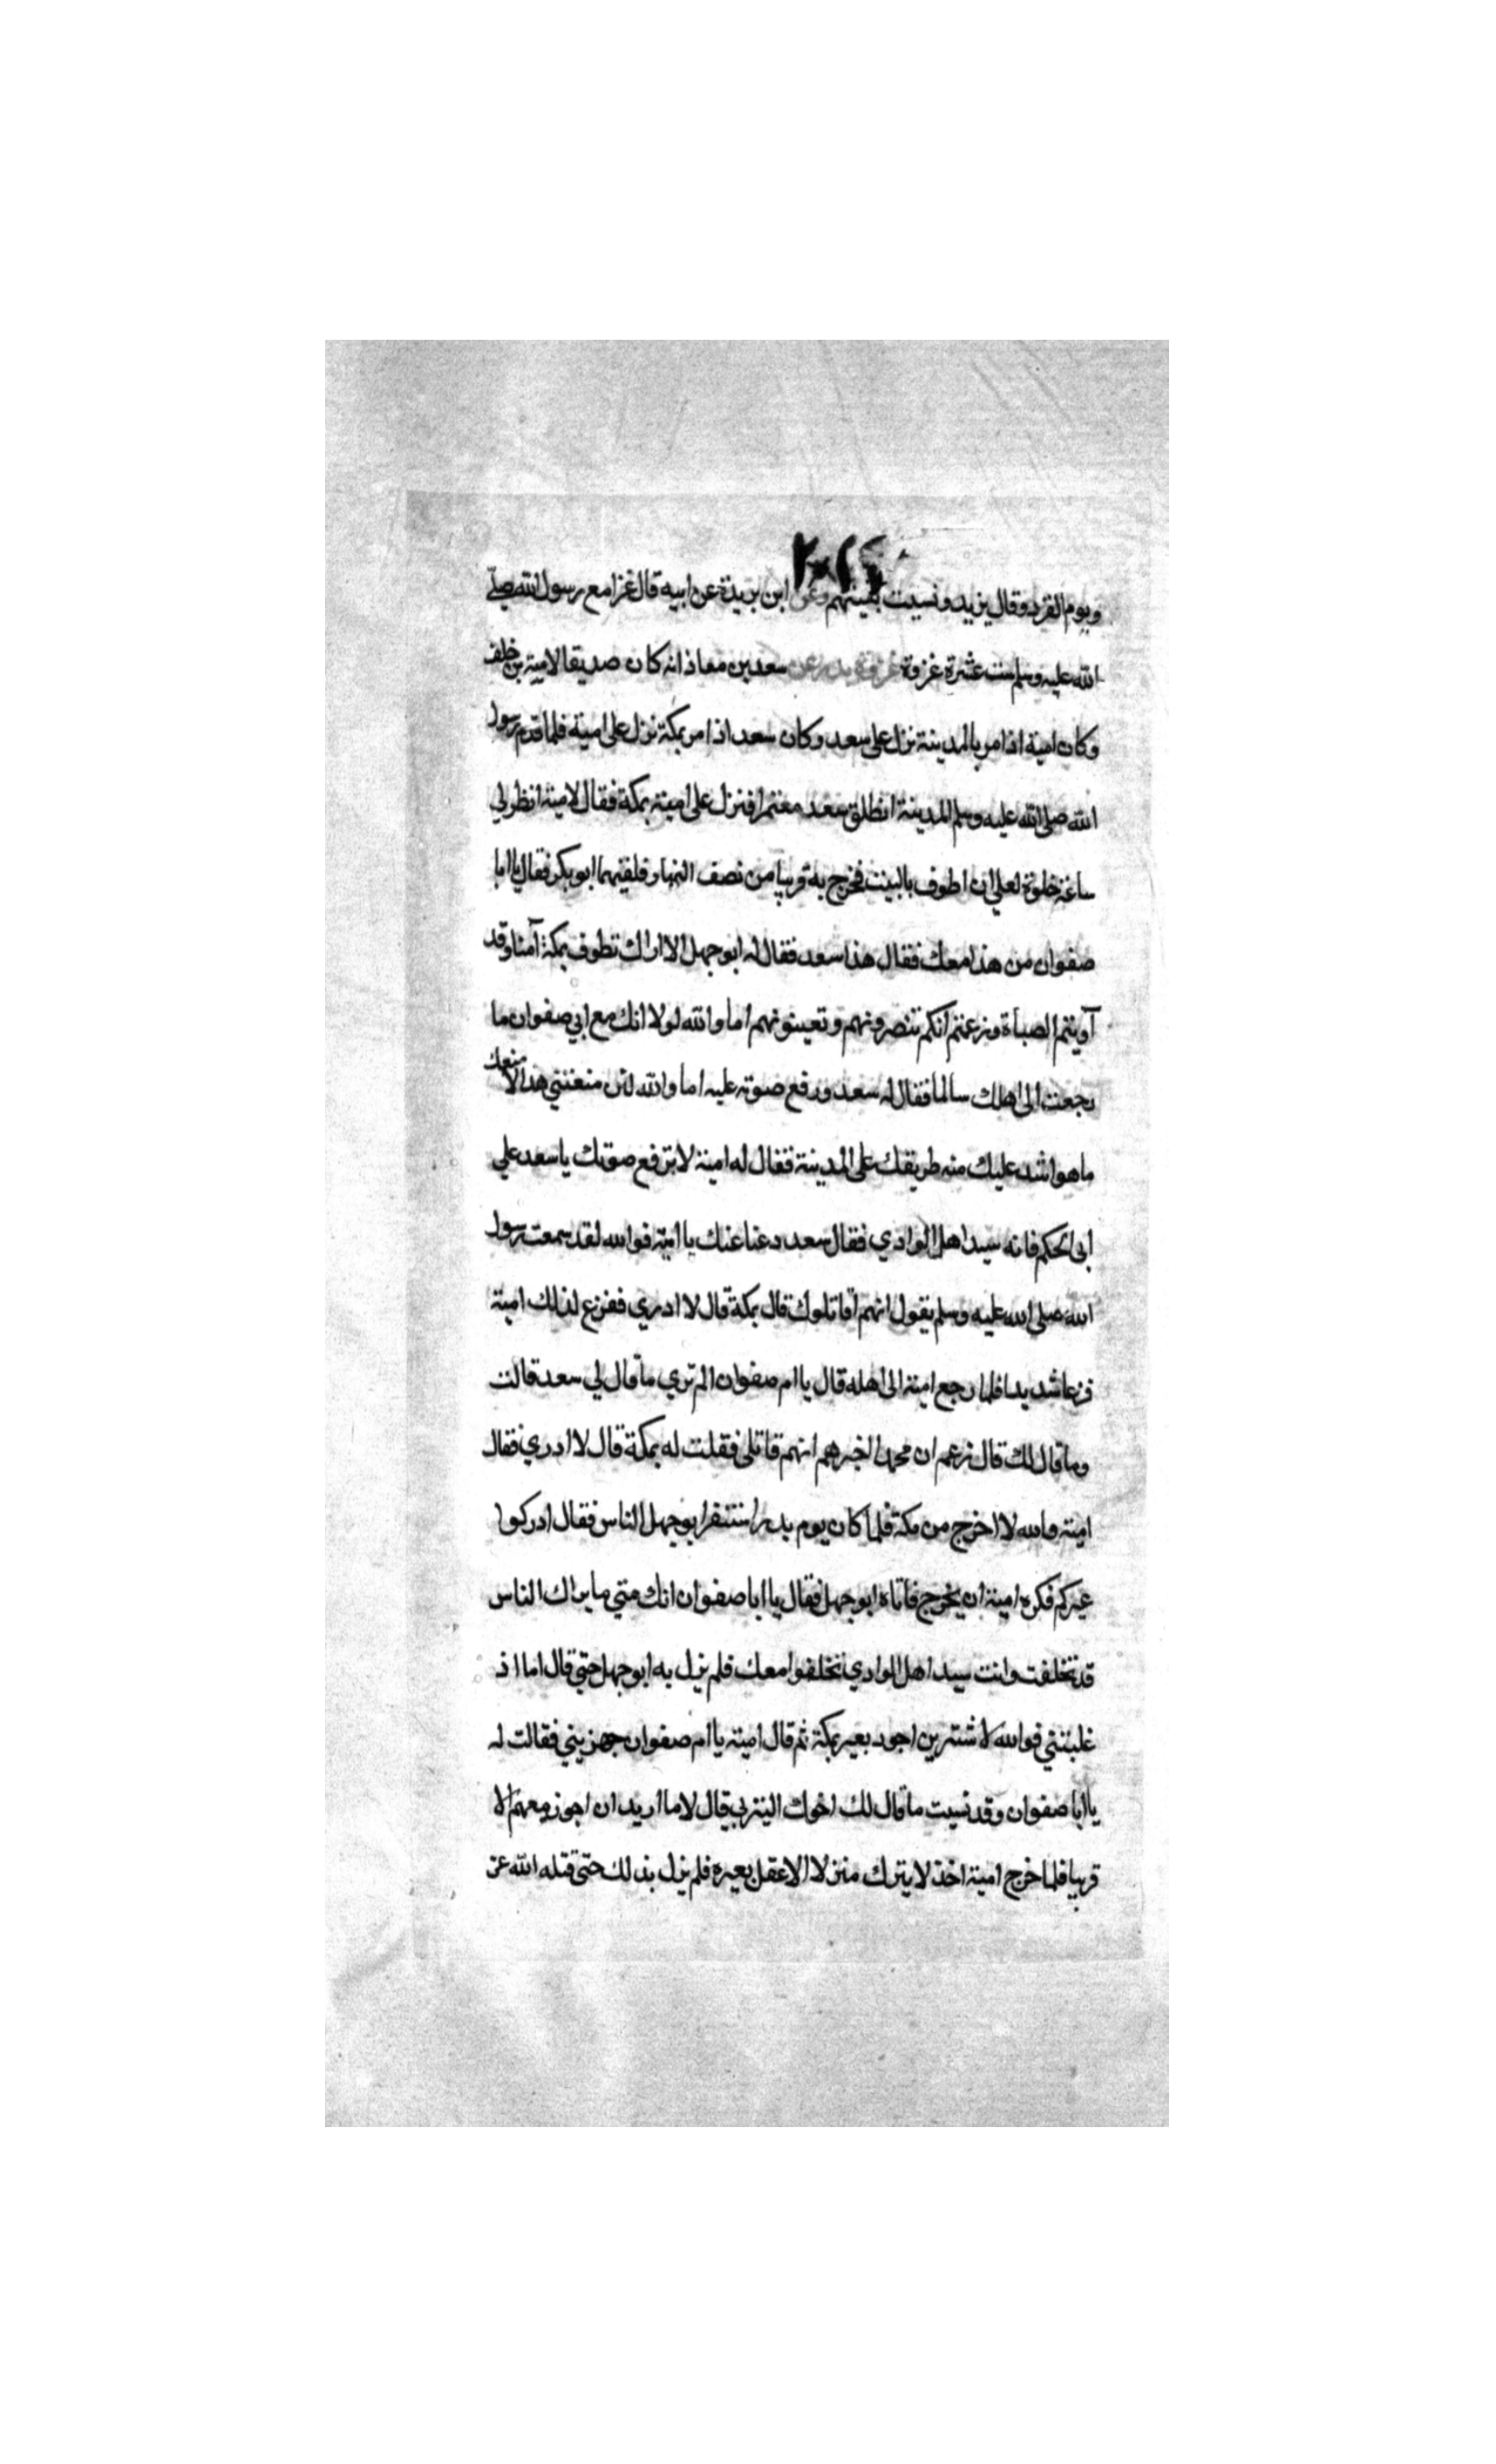 ويوم القرد وقال يزيد ونسيت بقيتهم وعن ابن بريدة عن ابيه قال غزا مع رسول الله صلى
الله عليه وسلم ست عشرة غزوة غزوة بدر عن سعد بن معاذ انه كان صديقا لامية بن خلف
وكان امية اذا مر بالمدينة نزل على سعد وكان سعد اذا مر بمكة نزل على امية فلما قدم رسول
الله صلى الله عليه وسلم المدينة انطلق سعد معتمرا فنزل على امية بمكة فقال لامية انظر لي
ساعة خلوة لعلي ان اطوف بالبيت فخرج به قريبا من نصف النهار فلقيهما ابو بكر فقال يا ابا
صفوان من هذا معك فقال هذا سعد فقال له ابو جهل الا اراك تطوف بمكة آمنا وقد
آويتم الصباة وزعمتم انكم تنصرونهم وتعينونهم اما والله لولا انك مع ابي صفوان ما
رجعت الى اهلك سالما فقال له سعد ورفع صوته عليه اما والله لئن منعتني هذا لا منعك
ما هو اشد عليك منه طريقك على المدينة فقال له امية لا ترفع صوتك يا سعد علي
ابى الحكم فانه سيد اهل الوادي فقال سعد دعنا عنك يا امية فوالله لقد سمعت رسول
الله صلى الله عليه وسلم يقول انهم لقاتلوك قال بمكة قال لا ادري ففزع لذلك امية
فزعا شديدا فلما رجع امية الى اهله قال يا ام صفوان الم تري ما قال لي سعد قالت
وما قال لك قال زعم ان محمدا اخبرهم انهم قاتلى فقلت له بمكة قال لا ادري فقال
امية والله لا اخرج من مكة فلما كان يوم بدر استنفر ابو جهل الناس فقال ادركوا
عيركم فكره امية ان يخرج فاتاه ابو جهل فقال يا ابا صفوان انك متي ما يراك الناس
قد تخلفت وانت سيد اهل الوادي تخلفوا معك فلم يزل به ابو جهل حتي قال اما اذ
غلبتني فوالله لاشترين اجود بعير بمكة ثم قال امية يا ام صفوان جهزيني فقالت له
يا ابا صفوان وقد نسيت ما قال لك اخوك اليثربي قال لا ما اريد ان اجوز معهم الا
قريبا فلما خرج امية اخذ لا يترك منزلا الا عقل بعيره فلم يزل بذلك حتى قتله الله عز